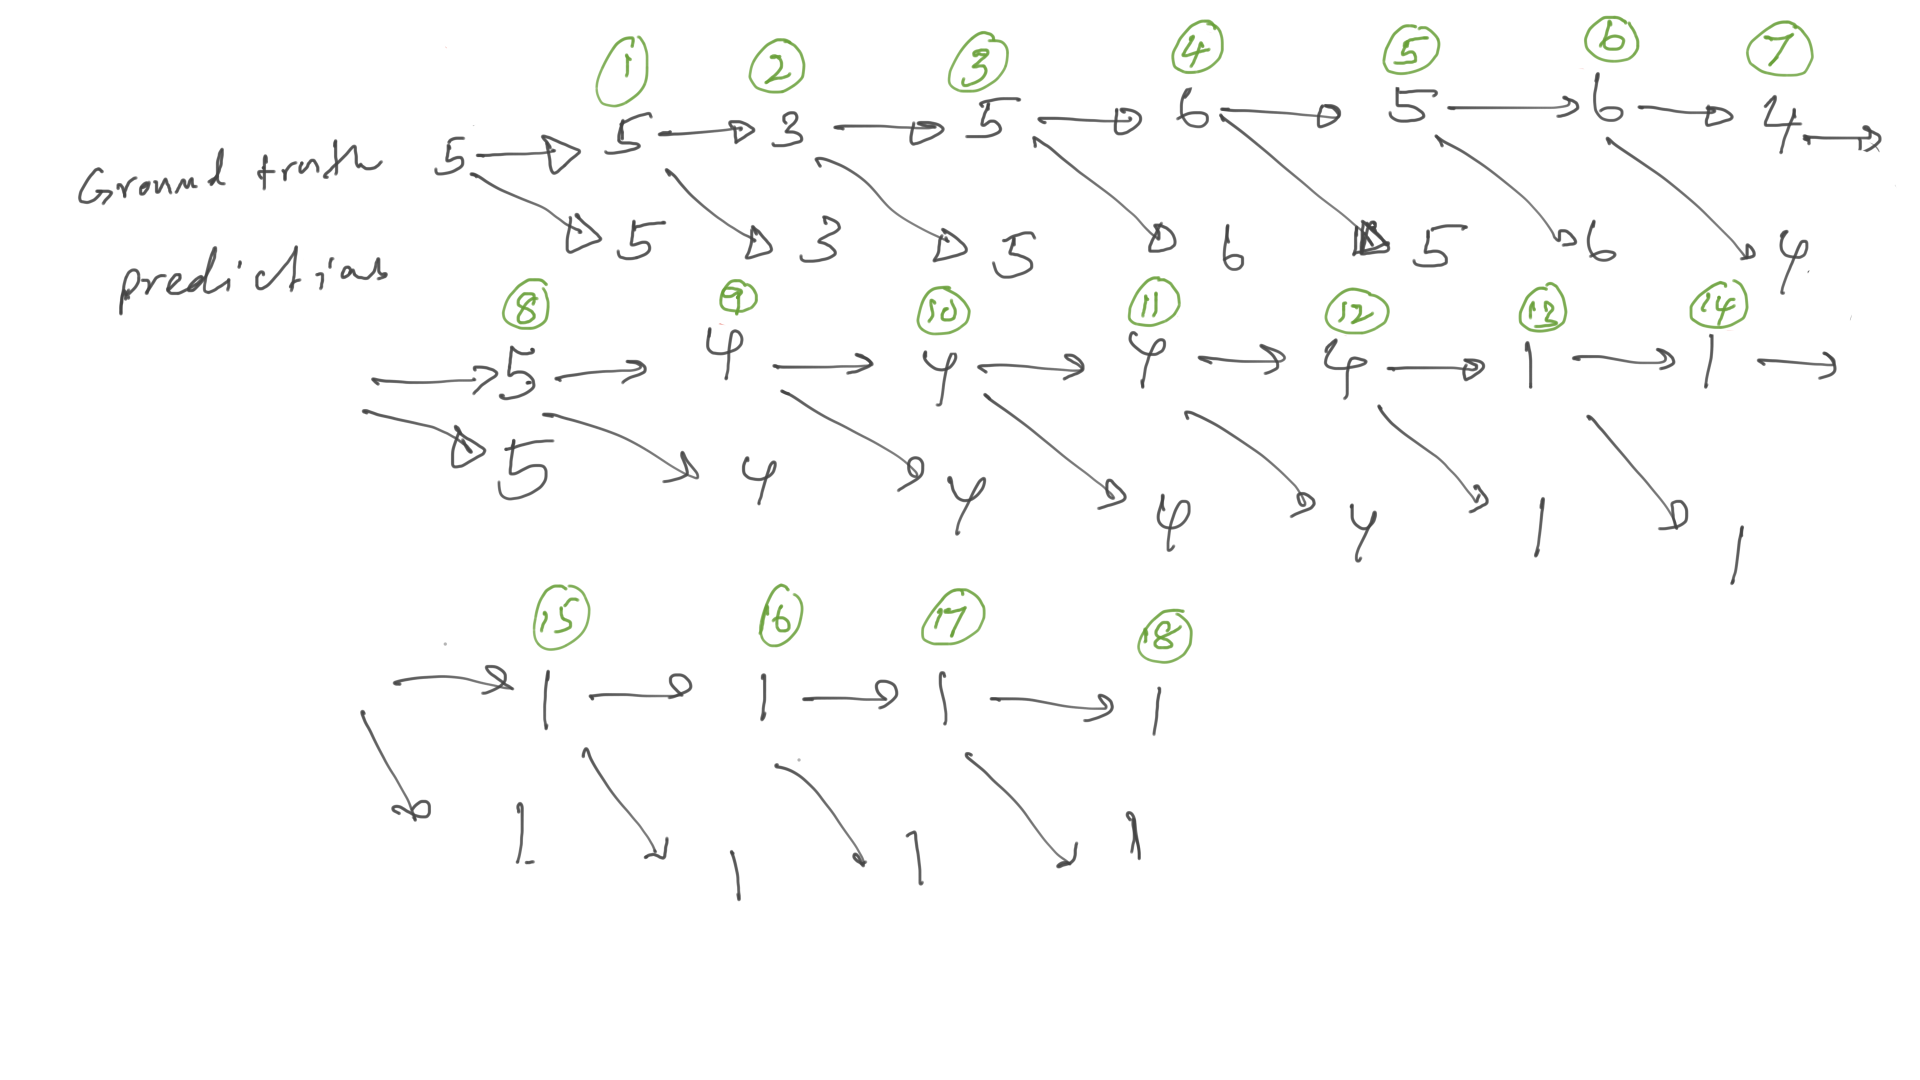 ① ② ③ ④ ⑤ ⑥ ⑦
Ground truth 5 → 5 → 3 → 5 → 6 → 5 → 6 → 4 →
predictions 5 3 5 6 5 6 4
⑧ ⑨ ⑩ ⑪ ⑫ ⑬ ⑭
→ 5 → 4 → 4 → 4 → 4 → 1 → 1 →
5 4 4 4 4 1 1
⑮ ⑯ ⑰ ⑱
→ 1 → 1 → 1 → 1
1 1 1 1